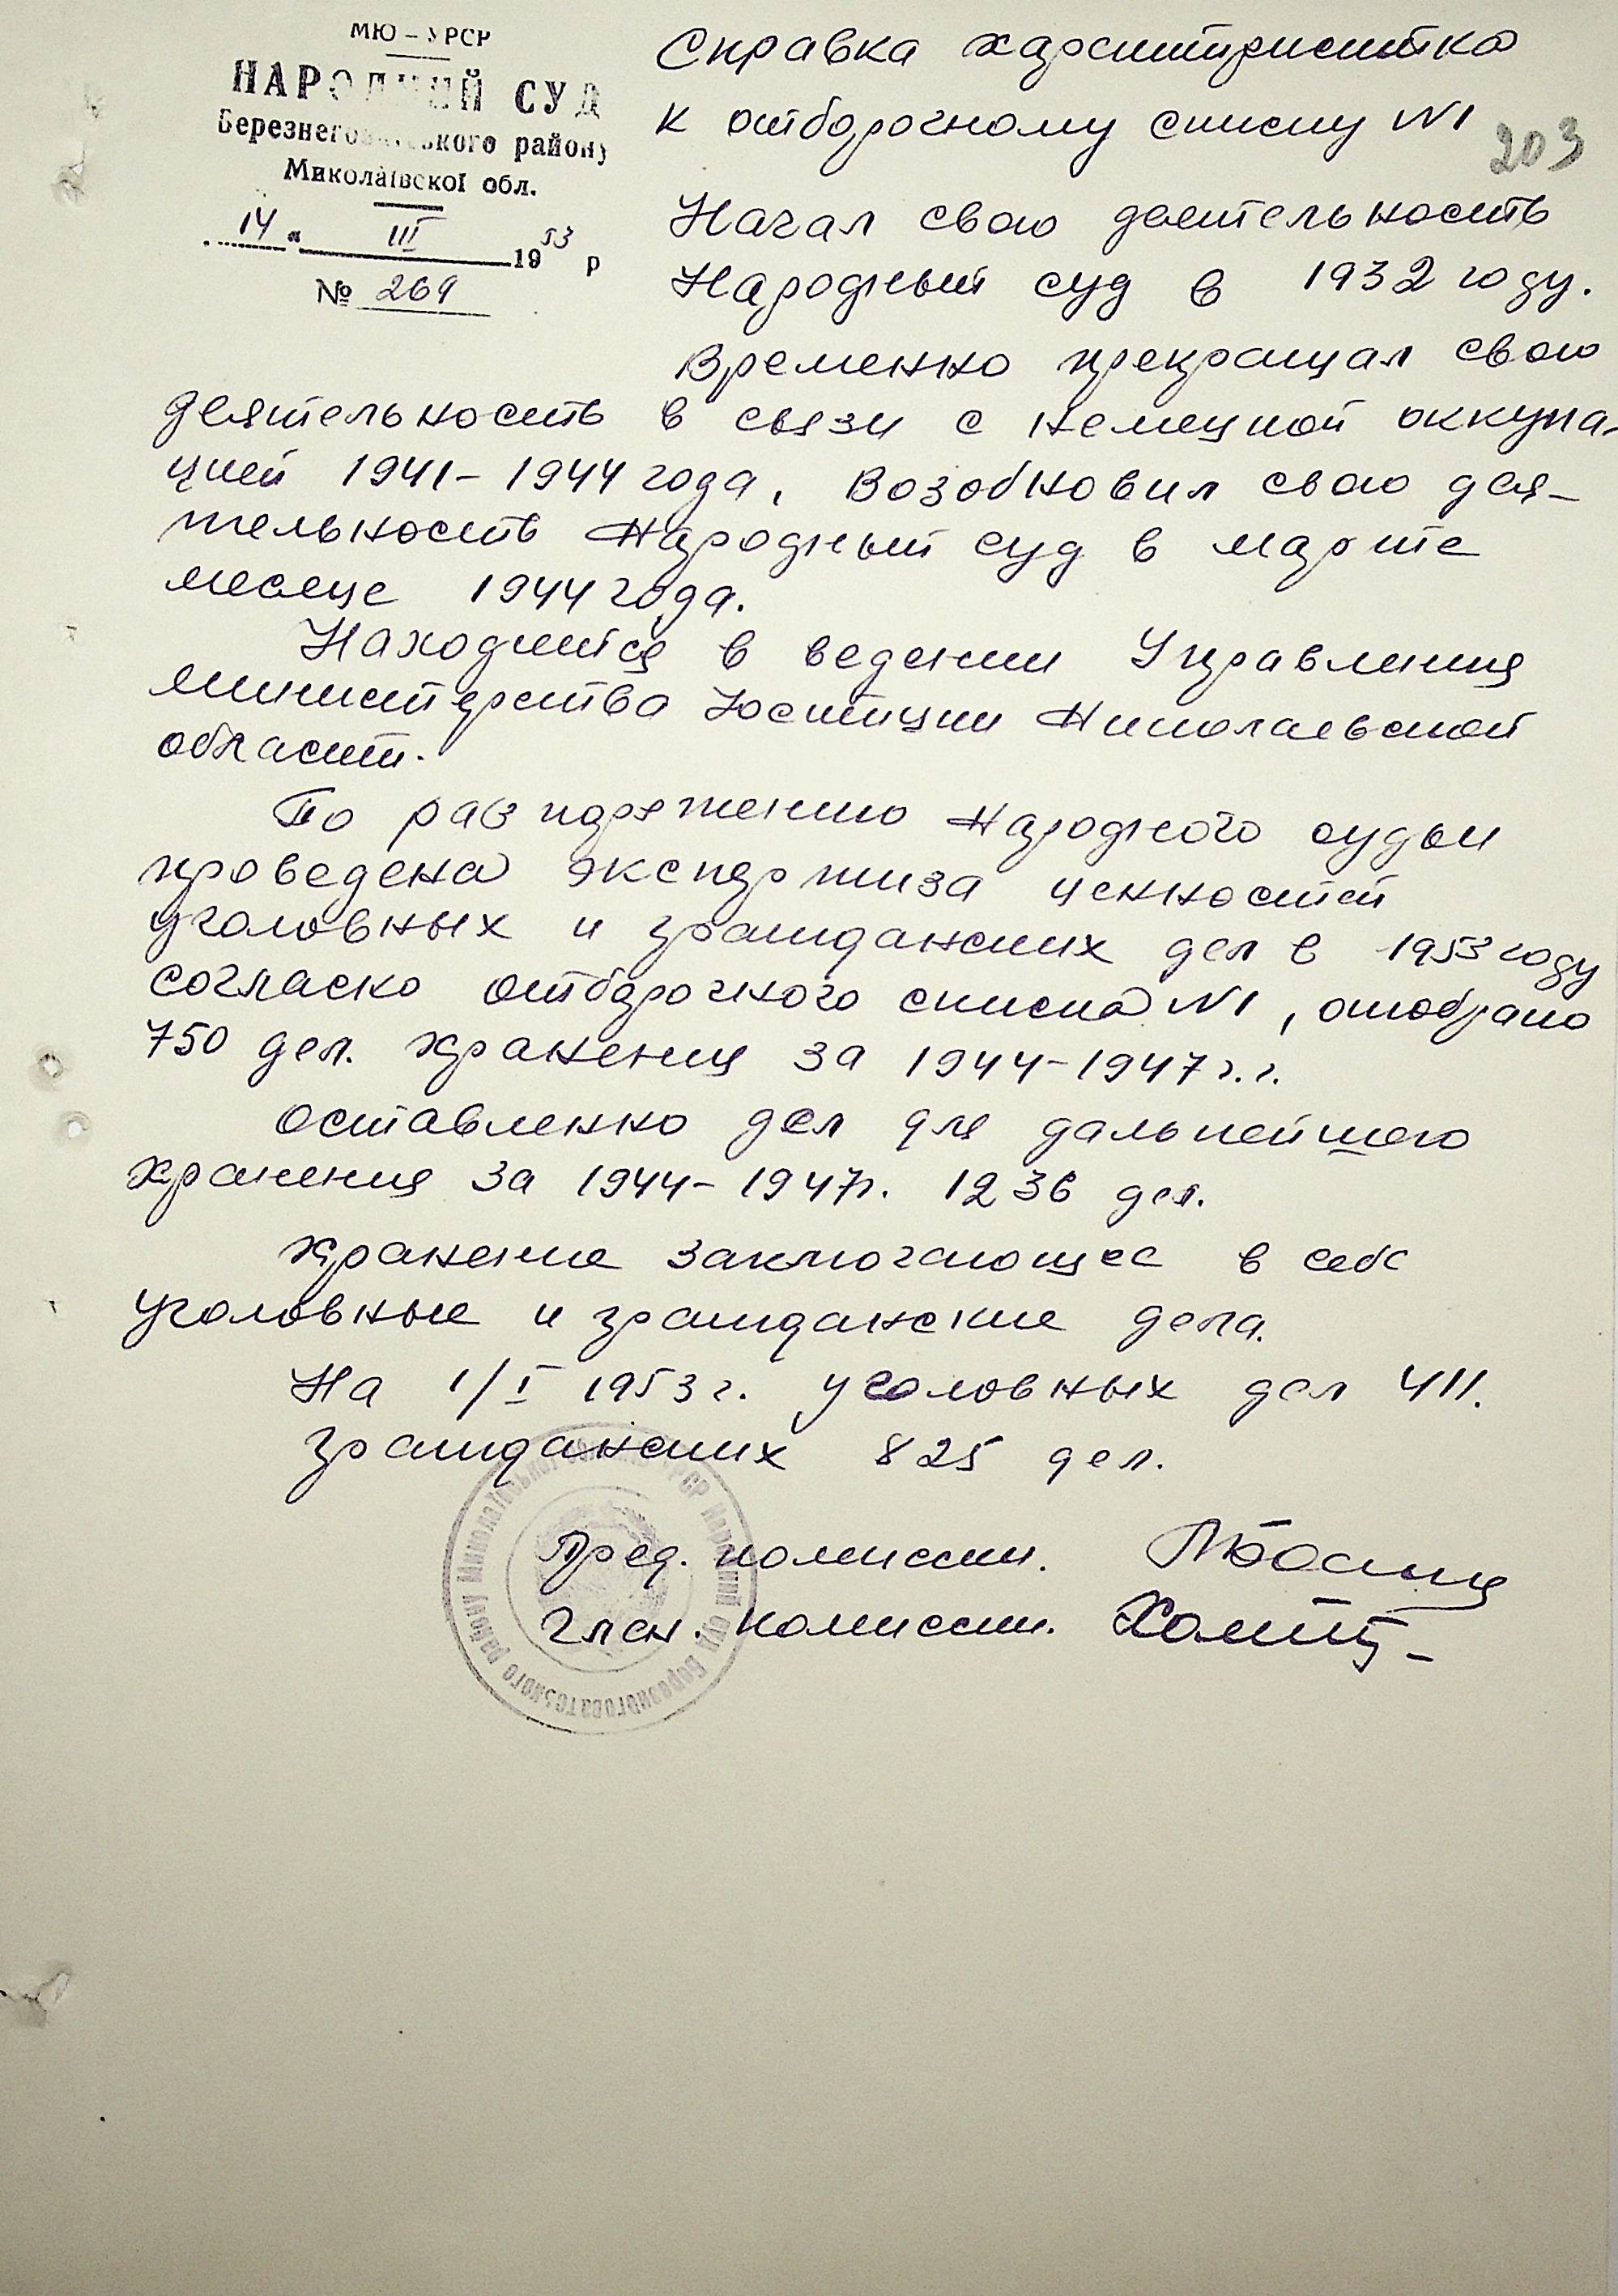 МЮ – УРСР
НАРОДНИЙ СУД
Березнеговатського району
Миколаївскої обл.
14 " III 1953 р
№ 269
Справка характиристика
к отборочному списку N1
203
Начал свою деятельность
Народный суд в 1932 году.
Временно прекращал свою
деятельность в связи с немецкой оккупа-
цией 1941-1944 года, Возобновил свою дея-
тельность Народный суд в марте
месяце 1944 года.
Находится в ведении Управления
министерства Юстиции Николаевской
област.
По распоряжению Народного судьи
проведена экспертиза ценностей
уголовных и гражданских дел в 1953 году
согласно отборочного списка N1, отобрано
750 дел. хранения за 1944-1947 г.г.
Оставленно дел для дальнейшего
хранения за 1944-1947г. 1236 дел.
Хранение заключающее в себе
уголовные и гражданские дела.
На 1/I 1953 г. уголовных дел 411.
Гражданских 825 дел.
Пред. комиссии.
Член. комиссии.
УРСР Народний суд Березнеговатського району Миколаївської